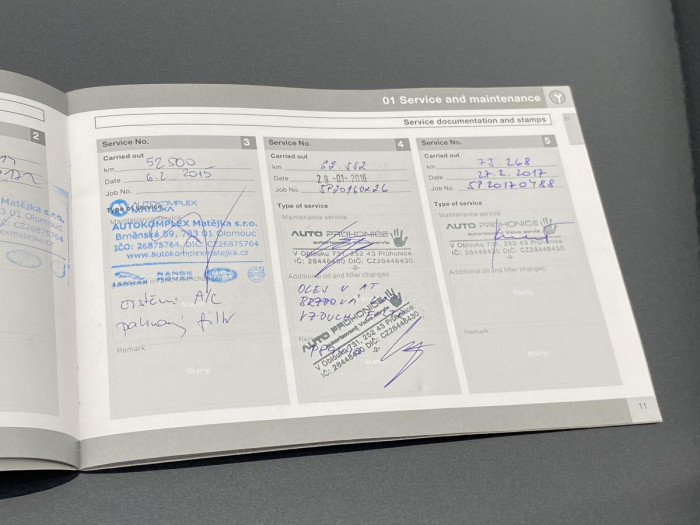 01 Service and maintenance
Service documentation and stamps
2
Matějka s.r.o.
3 01 Olomouc
Service No. 3
Carried out
km 52500
Date 6.2. 2015
Job No.
Type of service
AUTOKOMPLEX
MATĚJKA
Maintenance service
AUTOKOMPLEX Matějka s.r.o.
Brněnská 59, 783 01 Olomouc
IČO: 26875764, DIČ: CZ26875764
www.autokomplexmatejka.cz
RANGE
čištění A/C
palivový filtr
Remark
Stamp
Service No. 4
Carried out
km 62.552
Date 29-01-2016
Job No.
Type of service
Maintenance service
AUTO PRŮHONICE
V Oblouku 731, 252 43 Průhonice
IČ: 28448430 DIČ: CZ28448430
-2-
Additional oil and filter changes
OLEJ V AT
BRZDOVÁ
AUTO PRŮHONICE
Autorizovaný Volvo servis
V Oblouku 731, 252 43 Průhonice
IČ: 28448430 DIČ: CZ28448430
-2-
Remark
Stamp
Service No. 5
Carried out
km 73.268
Date 27.2.2017
Job No. SP20170488
Type of service
Maintenance service
AUTO PRŮHONICE
V Oblouku 731, 252 43 Průhonice
IČ: 28448430 DIČ: CZ28448430
-2-
Additional oil and filter changes
Remark
Stamp
11